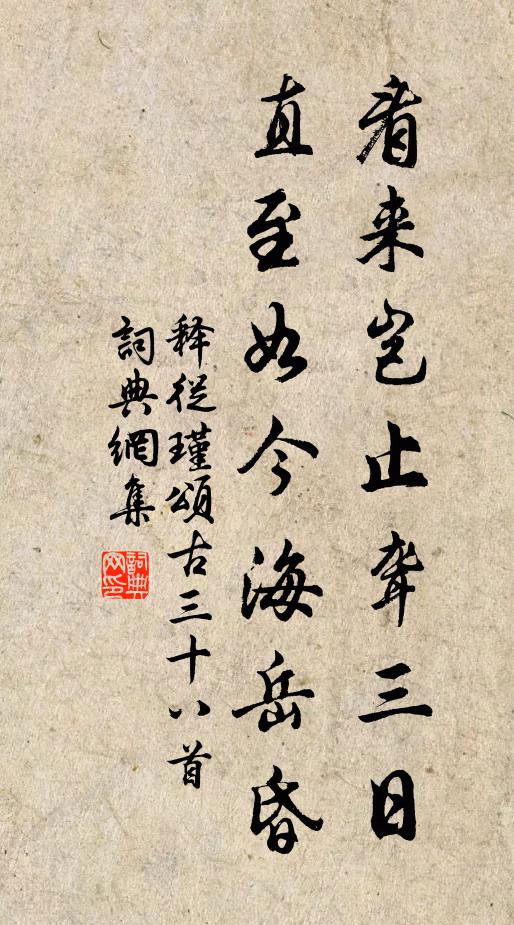 看来岂止聋三日
直至如今海岳昏
释从瑾頌古三十八首
詞典網集
詞典网印